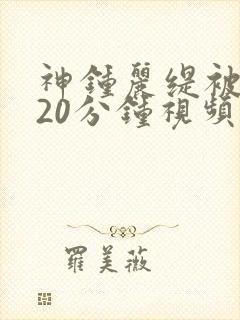 神鍾麗缇被
20分鍾視頻
羅美薇